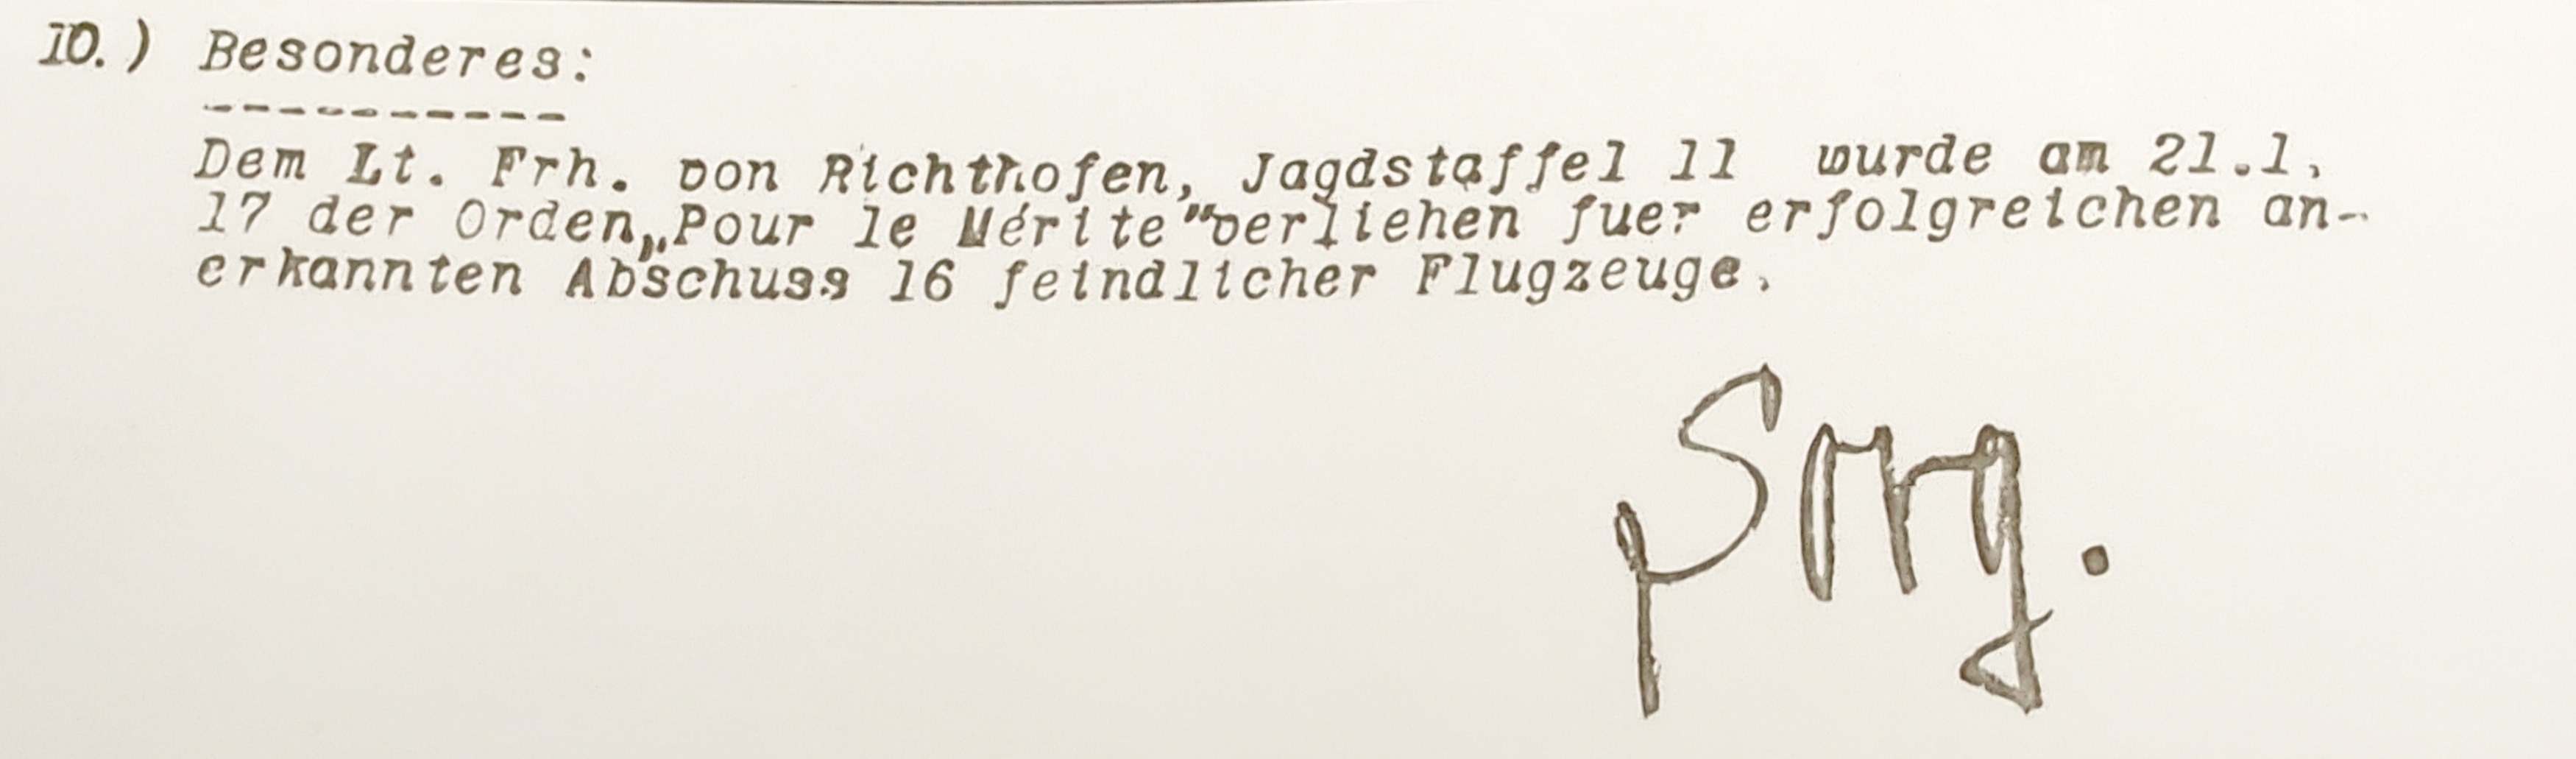 10.) Besonderes:
-----------
Dem Lt. Frh. von Richthofen, Jagdstaffel 11 wurde am 21.1.
17 der Orden„Pour le Mérite"verliehen fuer erfolgreichen an-
erkannten Abschuss 16 feindlicher Flugzeuge.
Sorg.